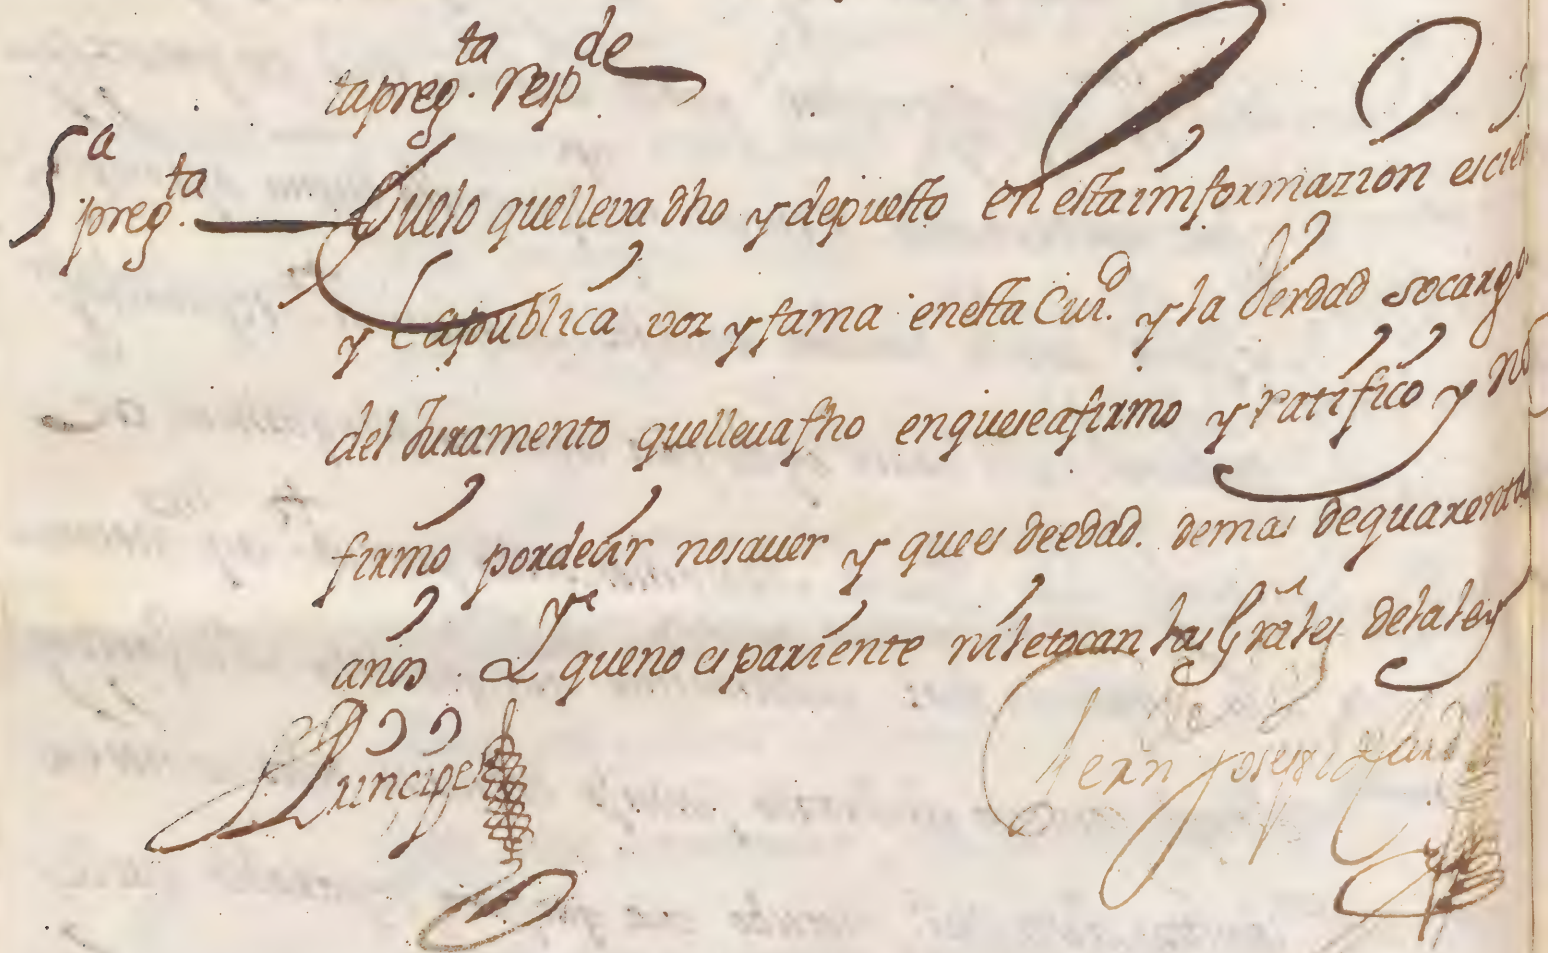 ta preg.ta respde
5a preg.ta Que lo que lleva dho y depuesto en esta imformazion es
y la publica voz y fama en esta Ciud. y la verdad so cargo
del Juramento que lleva fho en que se afirmo y ratifico y no
firmo por decir no saver y que es de edad de mas de quarenta
años. Y que no es pariente ni le tocan las Grales de la ley
Principe
Joseph